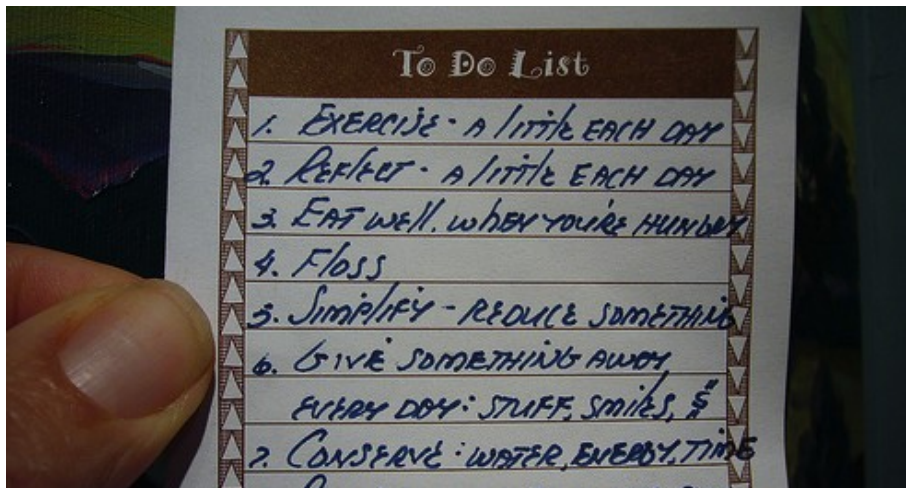 To Do List
1. EXERCISE - A little EACH DAY
2. REFLECT - A little EACH DAY
3. EAT WEll. WHEN YOU'RE HUNGRY
4. Floss
5. SIMPlIFY - REDUCE SOMETHING
6. GIVE SOMETHING AWAY
EVERY DAY: STUFF, SMilES, $
7. CONSERVE: WATER, ENERGY, TIME